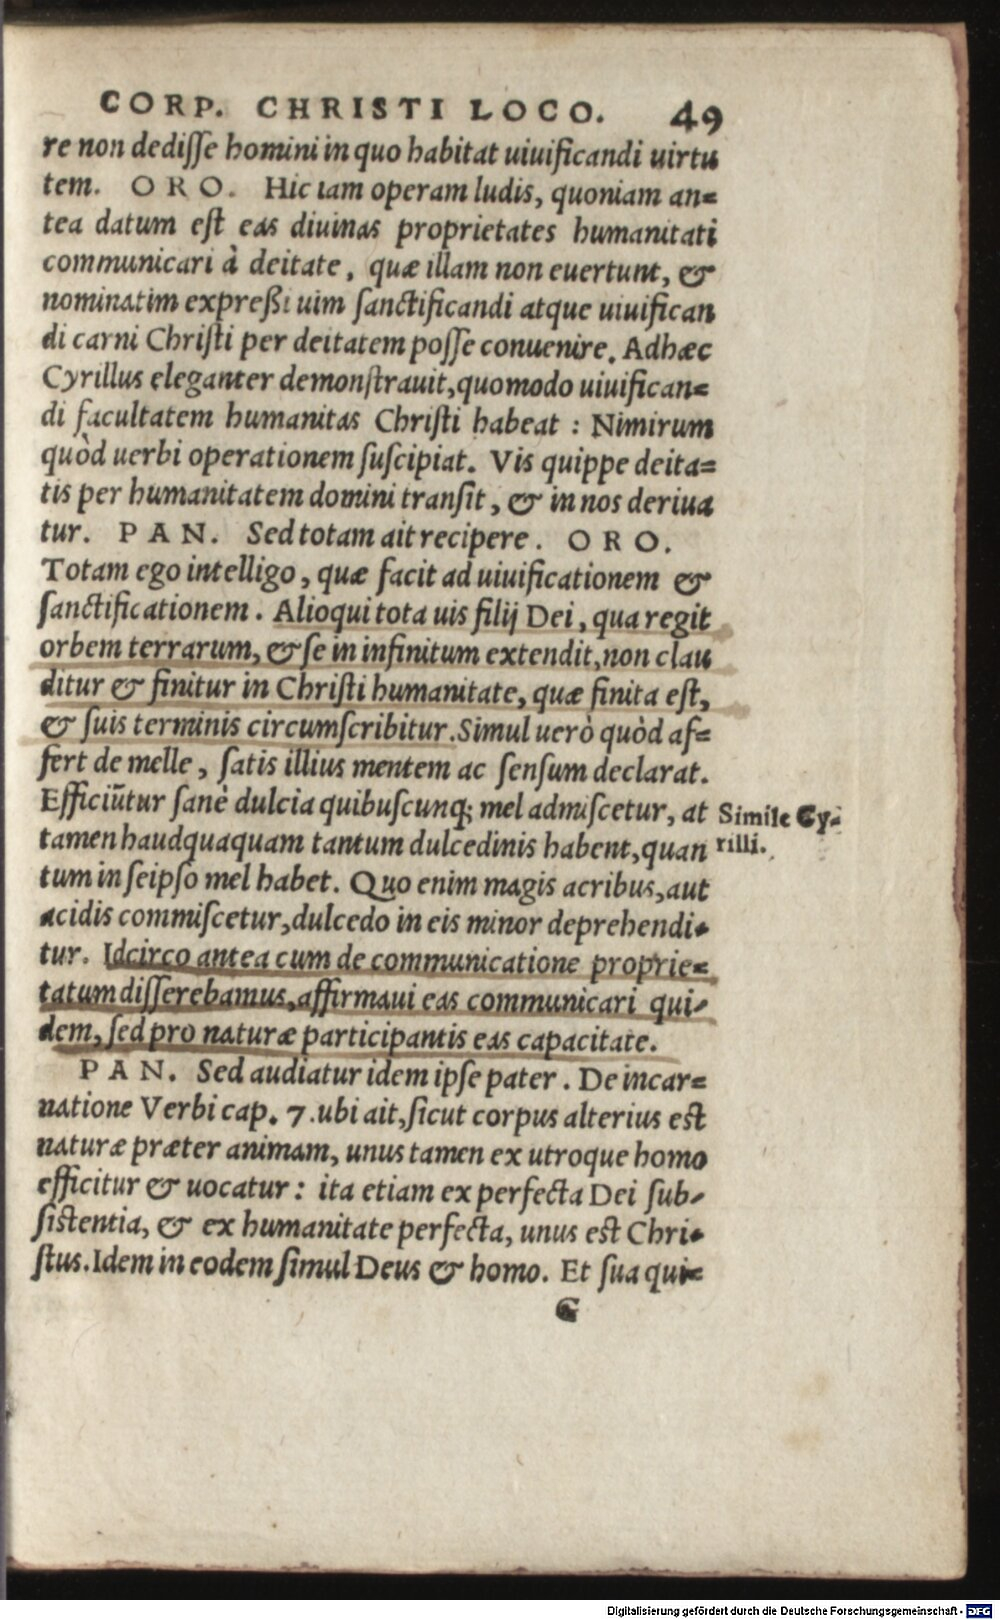 CORP. CHRISTI LOCO. 49
re non dediſſe homini in quo habitat uiuificandi uirtu
tem. ORO. Hic iam operam ludis, quoniam an=
tea datum eſt eas diuinas proprietates humanitati
communicari à deitate, quæ illam non euertunt, &
nominatim expreßi uim ſanctificandi atque uiuifican
di carni Chriſti per deitatem poſſe conuenire. Adhæc
Cyrillus eleganter demonſtrauit, quomodo uiuifican=
di facultatem humanitas Chriſti habeat : Nimirum
quòd uerbi operationem ſuſcipiat. Vis quippe deita=
tis per humanitatem domini tranſit, & in nos deriua
tur. PAN. Sed totam ait recipere. ORO.
Totam ego intelligo, quæ facit ad uiuificationem &
ſanctificationem. Alioqui tota uis filij Dei, qua regit
orbem terrarum, & ſe in infinitum extendit, non clau
ditur & finitur in Chriſti humanitate, quæ finita eſt,
& ſuis terminis circumſcribitur. Simul uerò quòd af=
fert de melle, ſatis illius mentem ac ſenſum declarat.
Efficiūtur ſanè dulcia quibuſcunq; mel admiſcetur, at
Simile Cy-
tamen haudquaquam tantum dulcedinis habent, quan
rilli.
tum in ſeipſo mel habet. Quo enim magis acribus, aut
acidis commiſcetur, dulcedo in eis minor deprehendi-
tur. Idcirco antea cum de communicatione proprie=
tatum diſſerebamus, affirmaui eas communicari qui-
dem, ſed pro naturæ participantis eas capacitate.
PAN. Sed audiatur idem ipſe pater. De incar=
natione Verbi cap. 7. ubi ait, ſicut corpus alterius eſt
naturæ præter animam, unus tamen ex utroque homo
efficitur & uocatur : ita etiam ex perfecta Dei ſub-
ſiſtentia, & ex humanitate perfecta, unus eſt Chri-
ſtus. Idem in eodem ſimul Deus & homo. Et ſua qui=
G
Digitalisierung gefördert durch die Deutsche Forschungsgemeinschaft - DFG